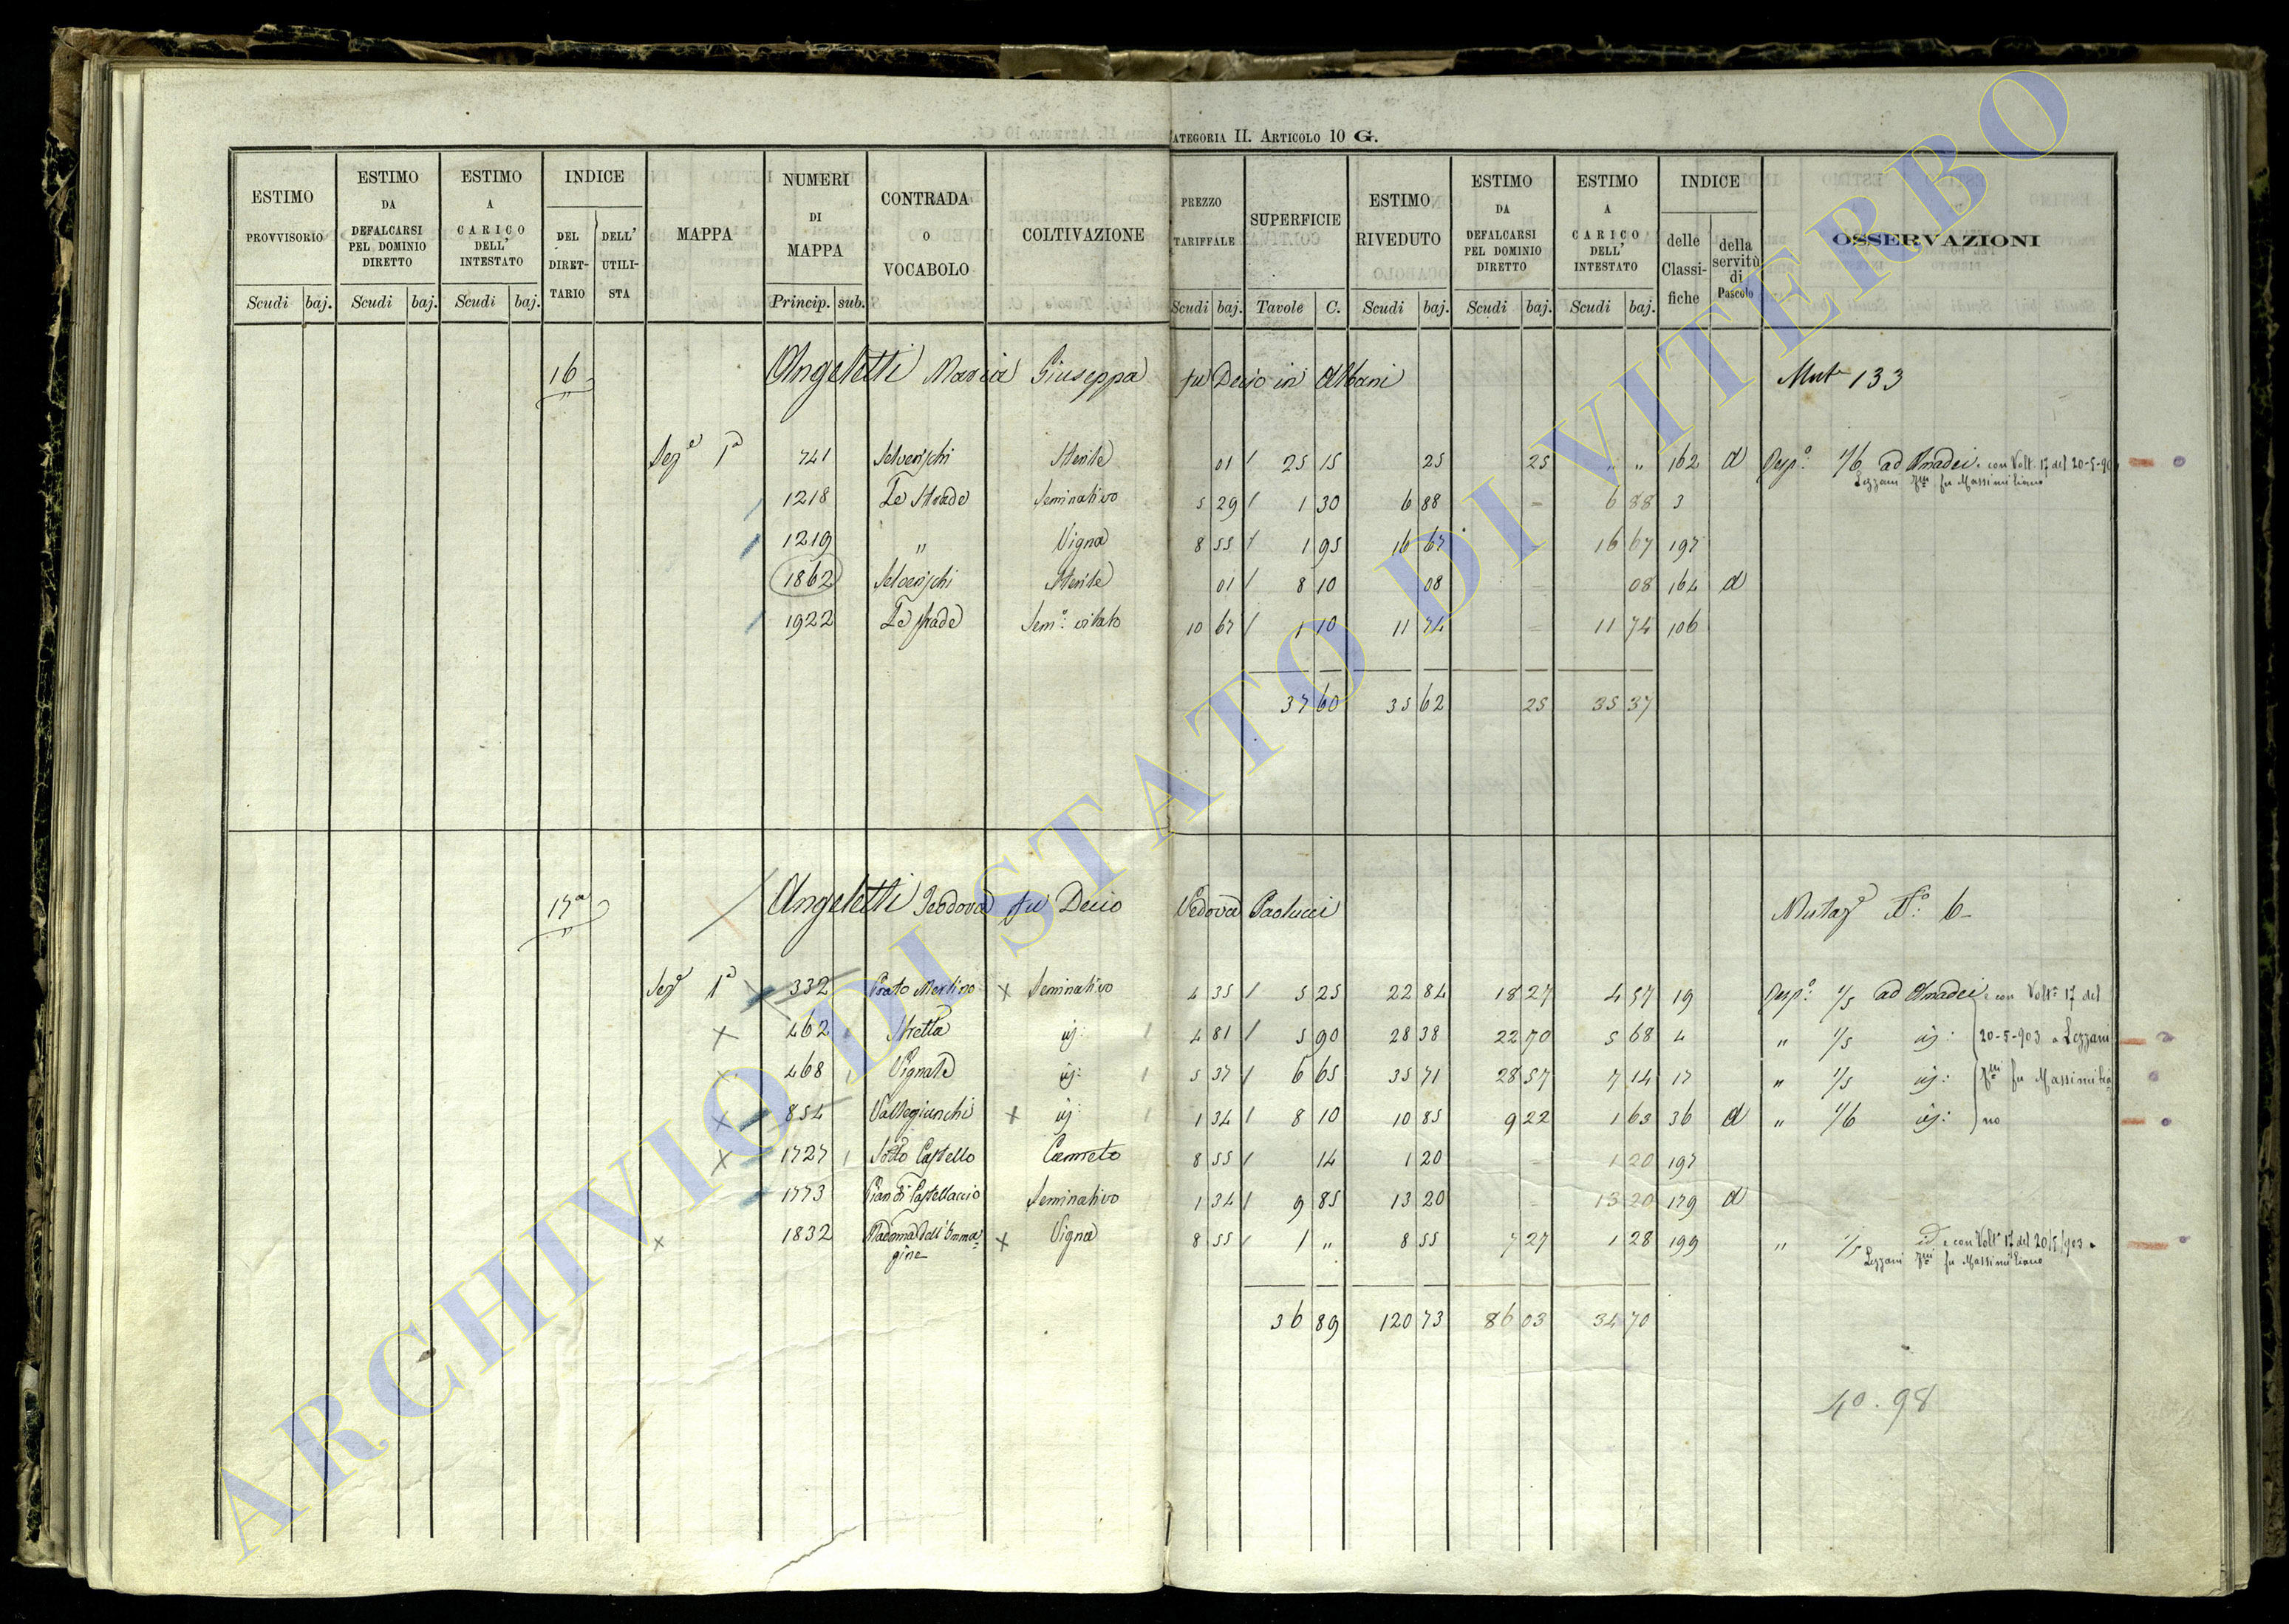 CATEGORIA II. ARTICOLO 10 G.
ESTIMO PROVVISORIO Scudi baj.
ESTIMO DA DEFALCARSI PEL DOMINIO DIRETTO Scudi baj.
ESTIMO A CARICO DELL' INTESTATO Scudi baj.
INDICE DEL DIRETTARIO DELL' UTILISTA
MAPPA
NUMERI DI MAPPA Princip. sub.
CONTRADA O VOCABOLO
COLTIVAZIONE
PREZZO TARIFFALE Scudi baj.
SUPERFICIE Tavole C.
ESTIMO RIVEDUTO Scudi baj.
ESTIMO DA DEFALCARSI PEL DOMINIO DIRETTO Scudi baj.
ESTIMO A CARICO DELL' INTESTATO Scudi baj.
INDICE delle Classifiche della servitù di Pascolo
OSSERVAZIONI
16 Angeletti Maria Giuseppa fu Decio in Albani Mut 133
Sez.e 1a 741 Selvarischi Sterile 01 25 15 25 25 " " 162 d Desp.o 1/6 ad Amadei e con Volt. 17 del 20-5-90
Lezzani fu Massimiliano
1218 Le Strade Seminativo 5 29 1 30 6 88 - 6 88 3
1219 " Vigna 8 55 1 95 16 67 - 16 67 197
1862 Selvarischi Sterile 01 8 10 08 - 08 164 d
1922 Le Strade Sem.o vitato 10 67 1 10 11 74 - 11 74 106
37 60 35 62 25 35 37
17a Angeletti Teodora fu Decio Vedova Paolucci Mutaz.e N.o 6
Sez.e 1a 332 Prato Merlino Seminativo 4 35 5 25 22 84 18 27 4 57 19 Desp.o 1/5 ad Amadei e con Volt.a 17 del
462 Stretta id: 4 81 5 90 28 38 22 70 5 68 4 " 1/5 id: 20-5-903 a Lezzani
468 Vignale id: 5 37 6 65 35 71 28 57 7 14 17 " 1/5 id: fu Massimilia
854 Vallegiunchi id: 1 34 8 10 10 85 9 22 1 63 36 d " 1/6 id: no
1727 Sotto Castello Canneto 8 55 14 1 20 - 1 20 197
1773 Pian di Castellaccio Seminativo 1 34 9 85 13 20 - 13 20 179 d
1832 Madonna dell'Imma= Vigna 8 55 1 " 8 55 7 27 1 28 199 " 1/5 id e con Volt.a 17 del 20/5/903 a
gine Lezzani fu Massimiliano
36 89 120 73 86 03 34 70
40.98
ARCHIVIO DI STATO DI VITERBO